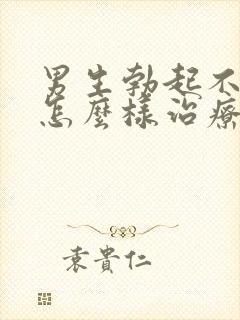 男生勃起不
怎麼樣治療
袁貴仁